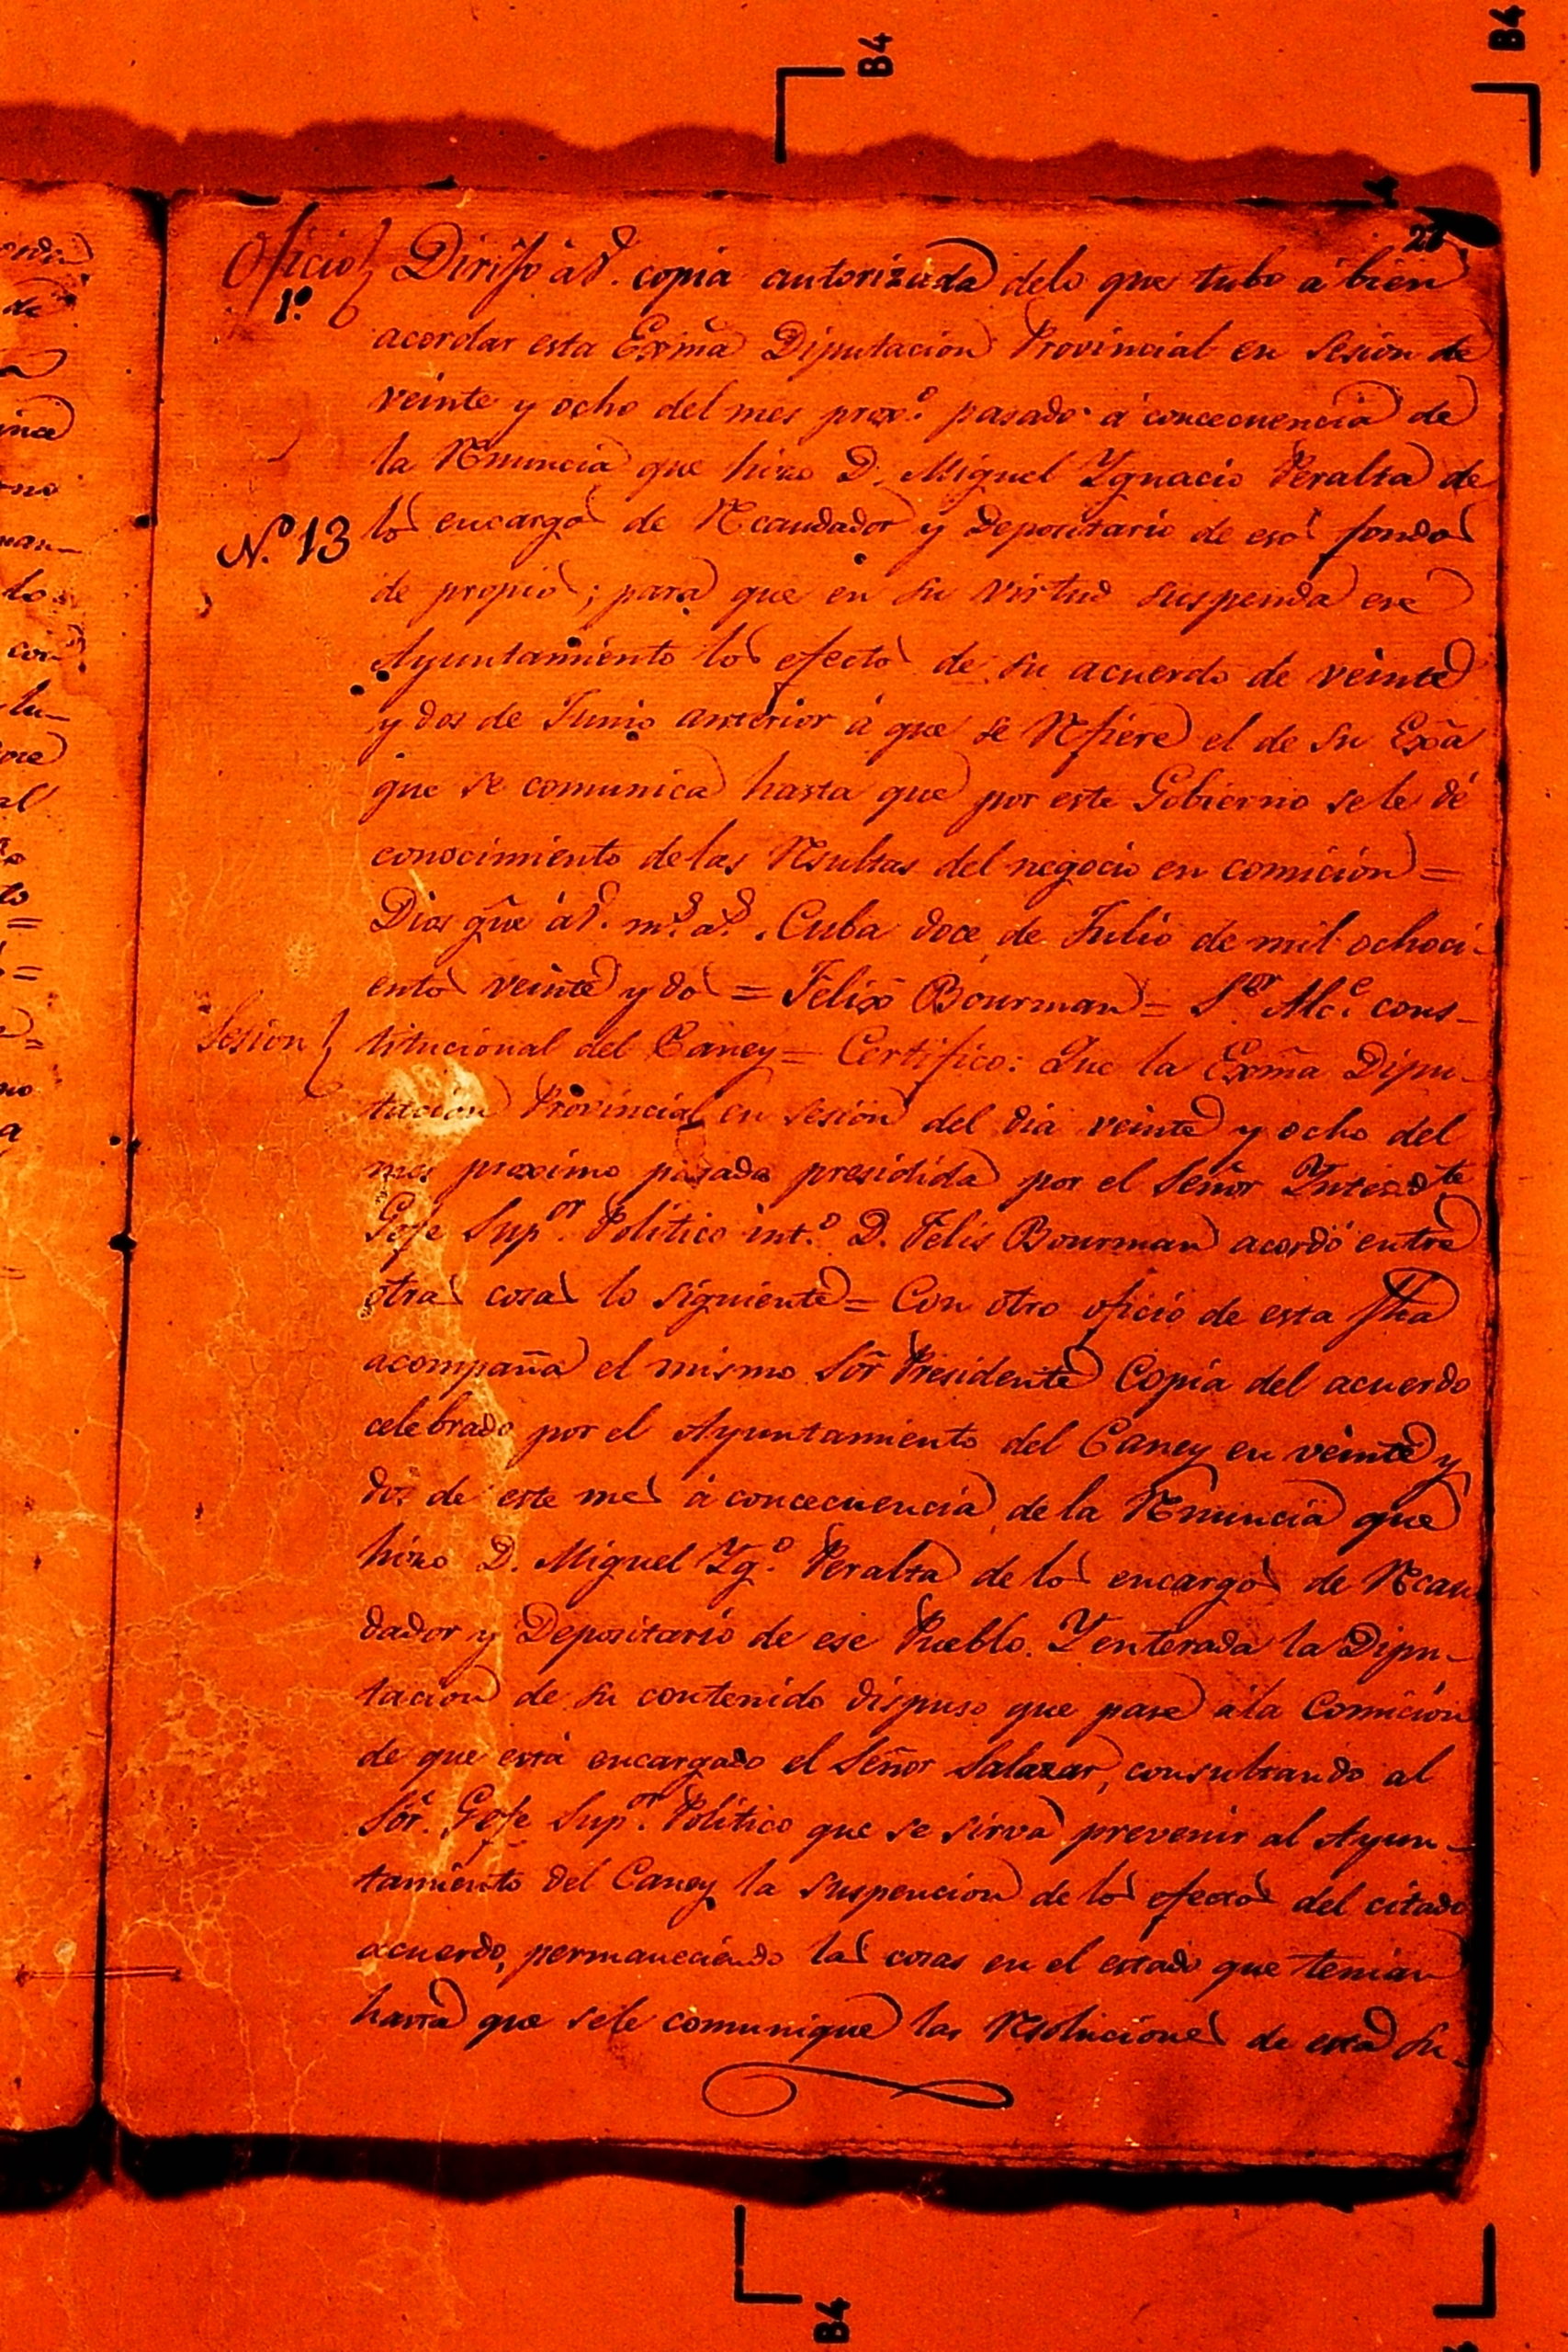 B4
B4
28
Oficio
1º
Dirijo á V. copia autorizada delo que tubo á bien
acordar esta Exmâ Diputacion Provincial en sesion de
veinte y ocho del mes prox.º pasado á concecuencia de
la Renuncia que hizo D. Miguel Ygnacio Peralta de
N.º 13
los encargos de Recaudador y Depositario de esos fondos
de propios; para que en su virtud suspenda ese
Ayuntamiento los efectos de su acuerdo de veinte
y dos de Junio anterior á que se Refiere el de su Exâ
que se comunica hasta que por este Gobierno sele dé
conocimiento delas Resultas del negocio en comicion =
Dios gûe á V. m.s a.s. Cuba doce de Julio de mil ochoci-
entos veinte y dos = Felix Bourman = S.or Alc.e cons-
Sesion
titucional del Caney = Certifico: Que la Exmâ Dipu-
tacion Provincial en sesion del dia veinte y ocho del
mes proximo pasado presidida por el Señor Intend.te
Gefe Sup.or Politico int.º D. Felis Bourman acordó entre
otras cosas lo siguiente = Con otro oficio de esta fha
acompaña el mismo Sôr Presidente Copia del acuerdo
celebrado por el Ayuntamiento del Caney en veinte y
dos de este mes á concecuencia de la Renuncia que
hizo D. Miguel Yg.º Peralta de los encargos de Recau
dador y Depositario de ese Pueblo. Y enterada la Dipu-
tacion de su contenido dispuso que pase ála Comicion
de que está encargado el Señor Salazar, consultando al
Sôr. Gefe Sup.or Politico que se sirva prevenir al Ayun-
tamiento del Caney la suspencion de los efectos del citado
acuerdo, permaneciendo las cosas en el estado que tenian
hasta que sele comunique las Resoluciones de esta Su-
B4